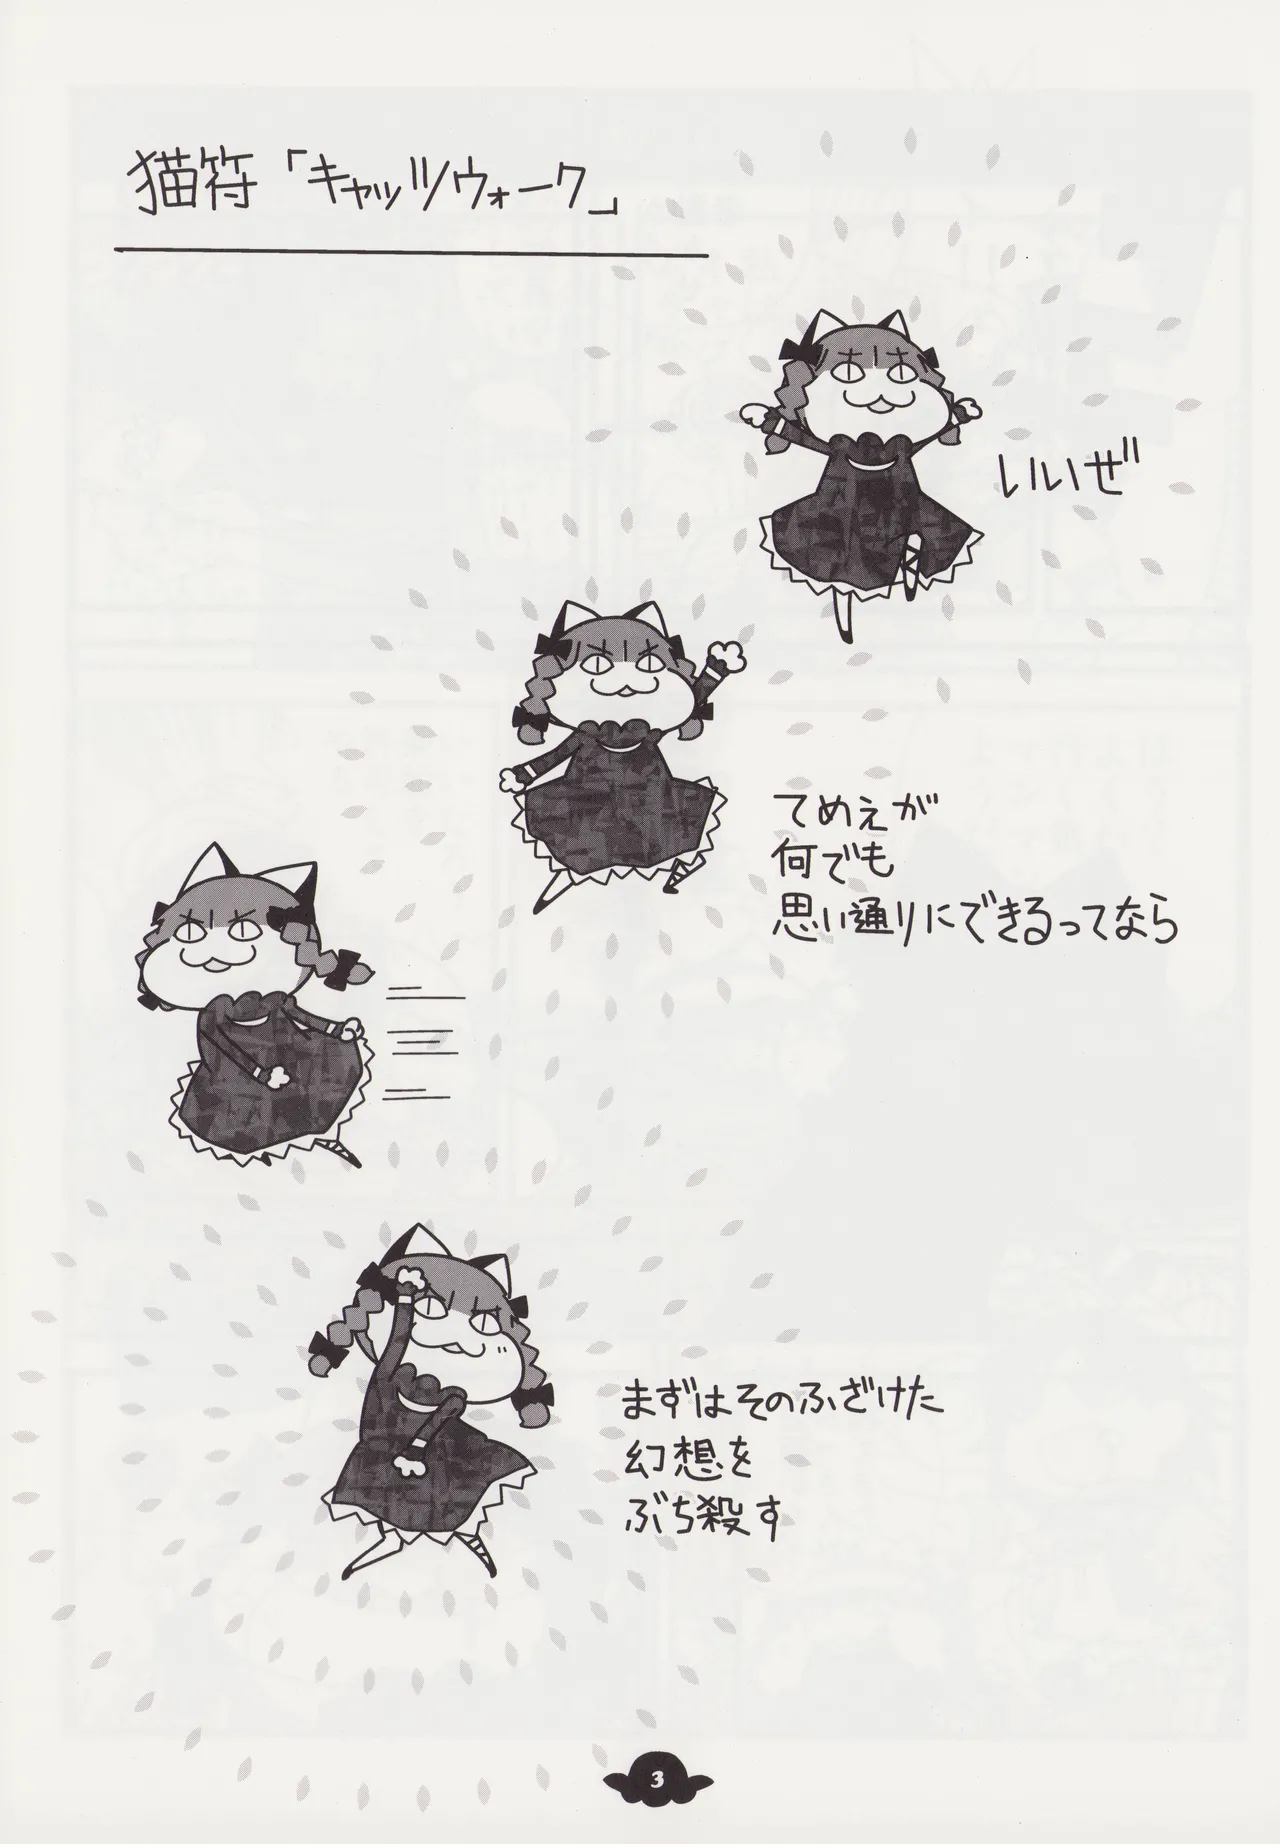 猫符「キャッツウォーク」
いいぜ
てめえが
何でも
思い通りにできるってなら
まずはそのふざけた
幻想を
ぶち殺す
3